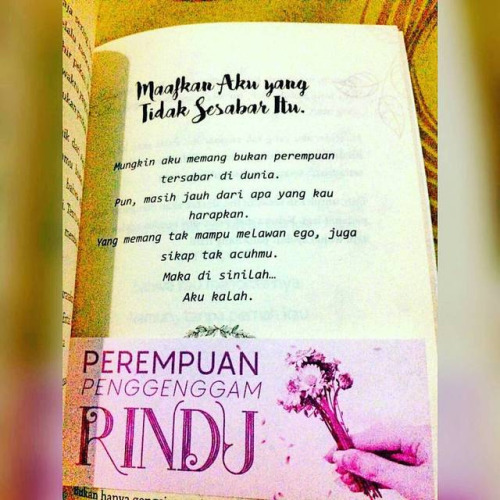 Maafkan Aku yang
Tidak Sesabar Itu.
Mungkin aku memang bukan perempuan
tersabar di dunia.
Pun, masih jauh dari apa yang kau
harapkan.
Yang memang tak mampu melawan ego, juga
sikap tak acuhmu.
Maka di sinilah…
Aku kalah.
PEREMPUAN
PENGGENGGAM
RINDU